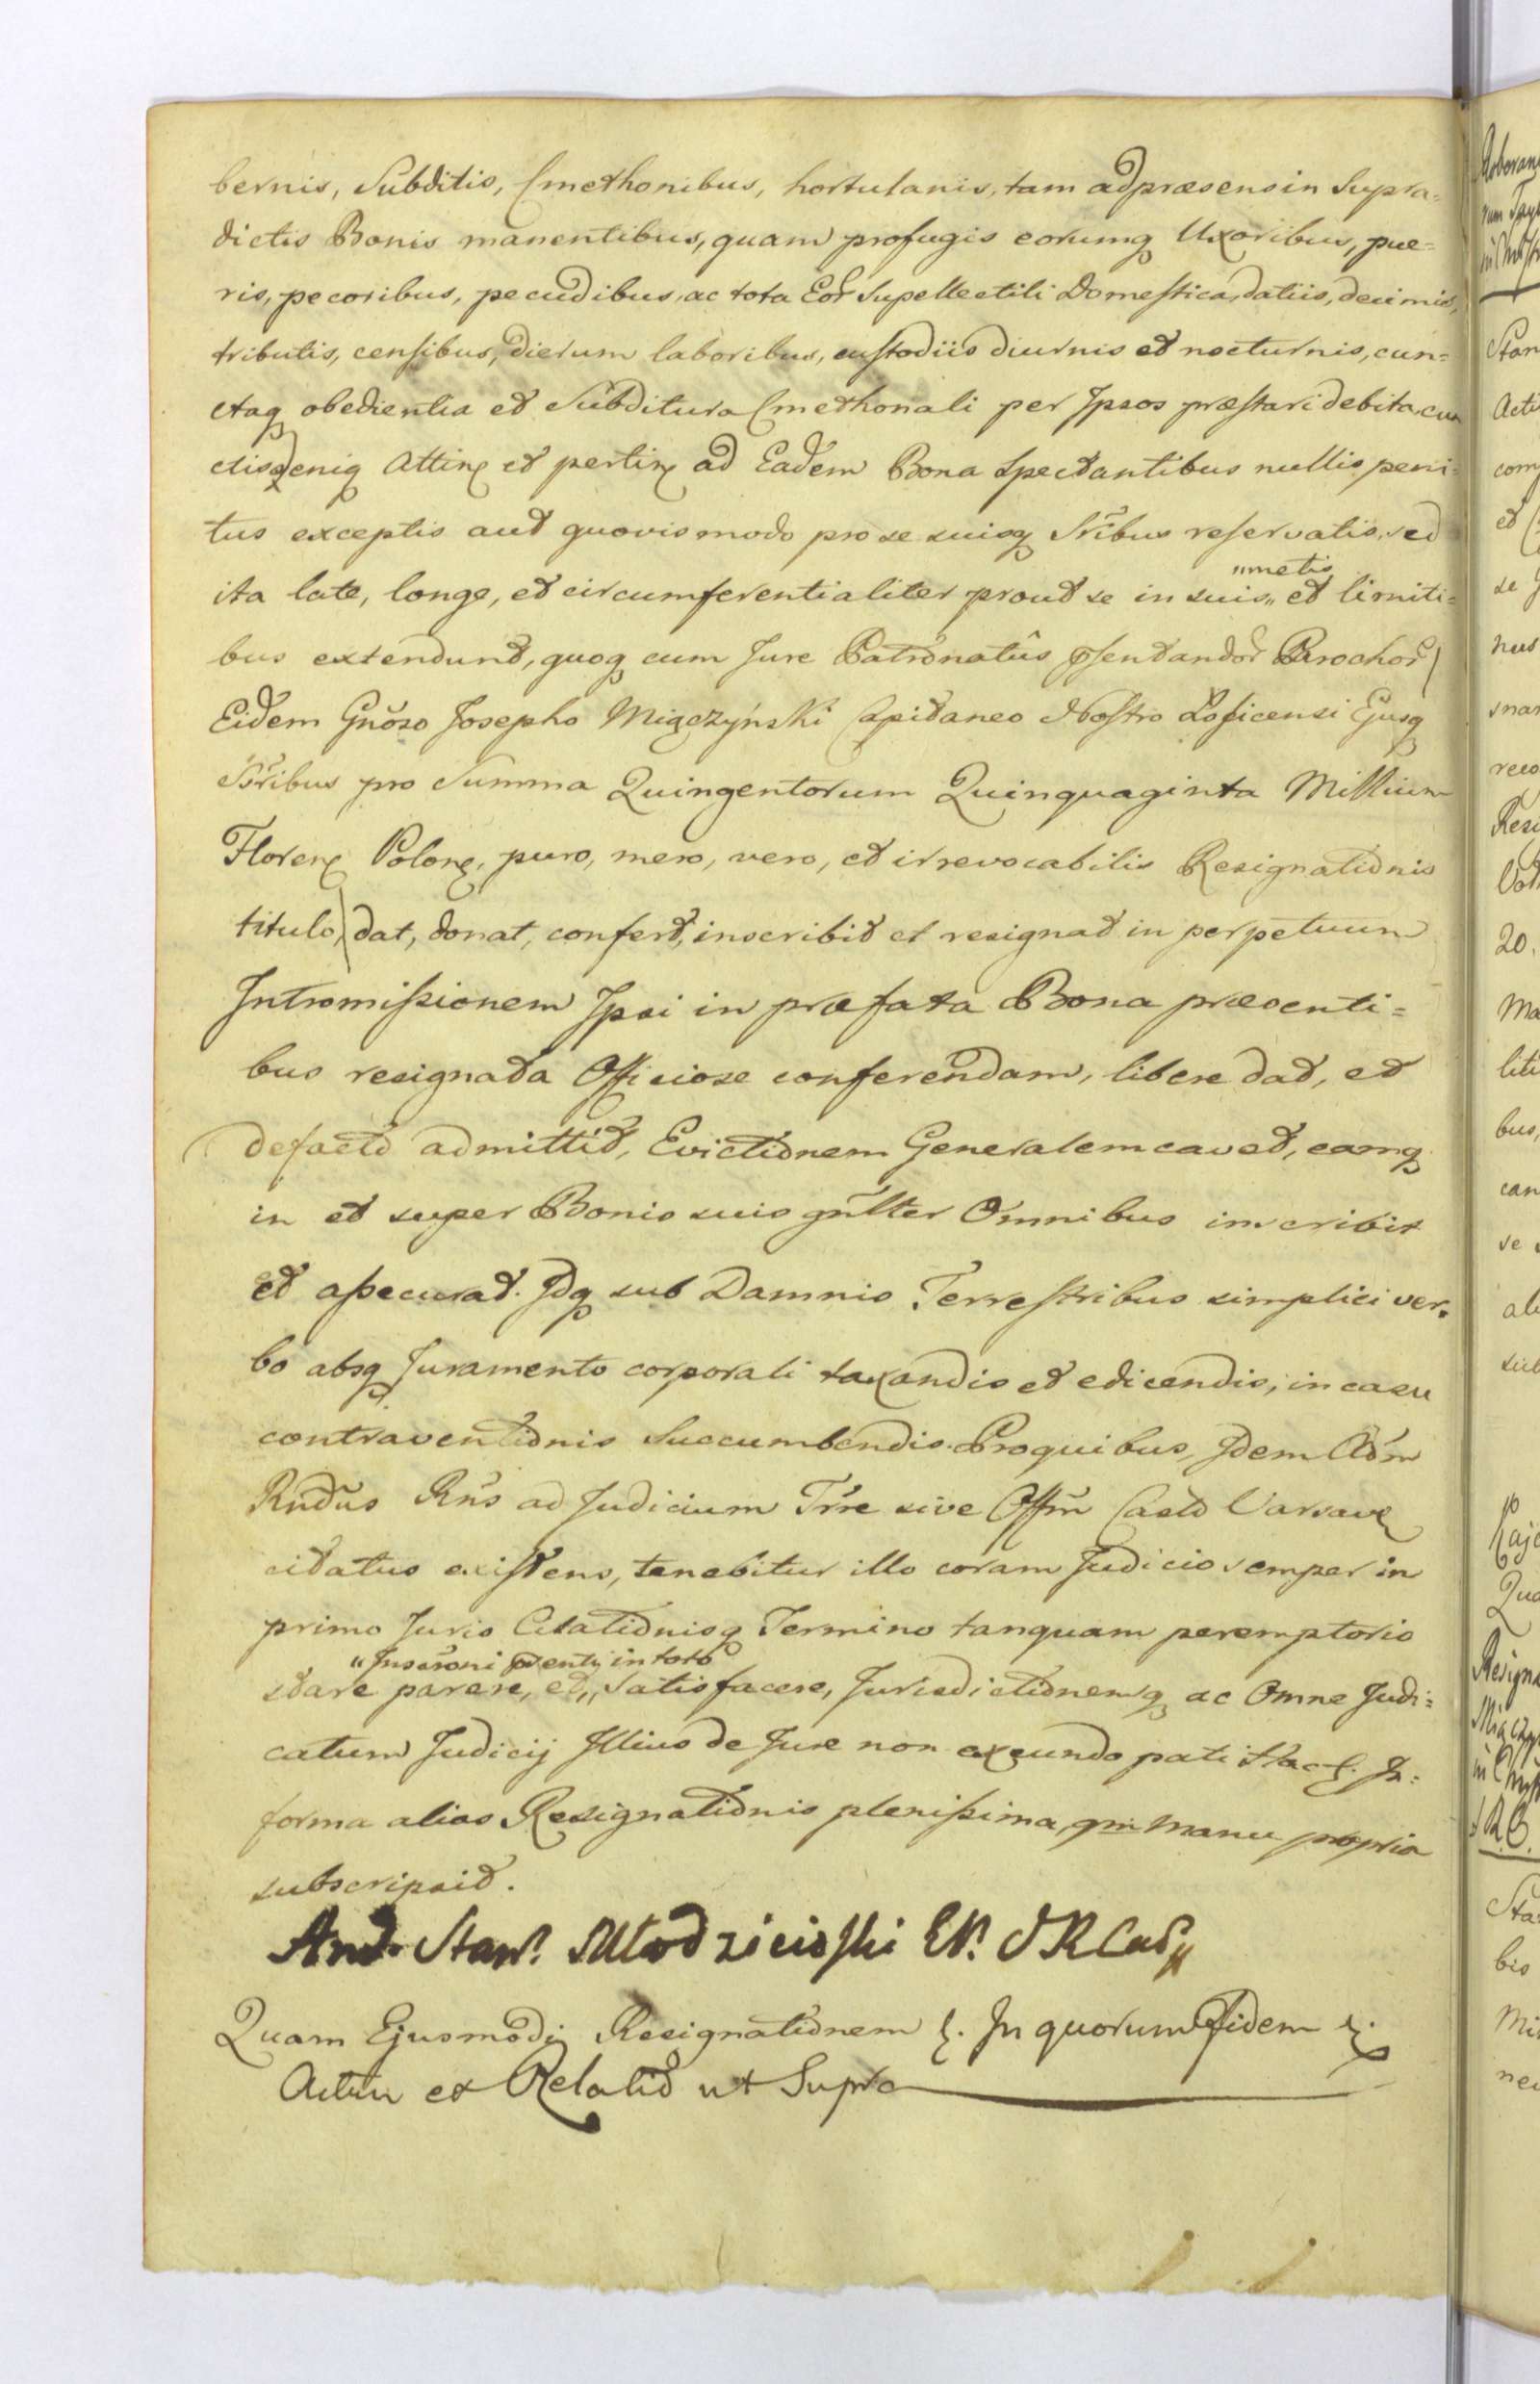 bernis, Subditis, Cmethonibus, hortulanis, tam ad præsens in Supra=
dictis Bonis manentibus, quam profugis eorumq Uxoribus, pue=
ris, pecoribus, pecudibus, ac tota Eor Supellectili Domestica, datiis, decimis,
tributis, censibus, dierum laboribus, custodiis diurnis et nocturnis, cun=
ctaq obedientia et Subditura Cmethonali per Ipsos præstari debita, cun
ctisq) eniq Attin et pertin ad Eadem Bona Spectantibus nullis peni=
tus exceptis aut quovis modo pro se suisq Sribus reservatis, sed
"metis
ita late, longe, et circumferentialiter prout se in suis,, et limiti=
bus extendunt, quoq cum Jure Patronatûs psentandor Parochor)
Eidem Gnoso Josepho Miączyński Capitaneo Nostro Łosicensi Ejusq
Sribus pro Summa Quingentorum Quinquaginta Millium
Floren Polon, puro, mero, vero, et irrevocabilis Resignationis
titulo) dat, donat, confert, inscribit et resignat in perpetuum
Intromissionem Ipsi in præfata Bona præsenti=
bus resignata Officiose conferendam, libere dat, et
defacto admittit, Evictionem Generalem cavet, eamq
in et super Bonis suis gnlter Omnibus inscribit
et assecurat. Idq sub Damnis Terrestribus simplici ver=
bo absq Juramento corporali taxandis et edicendis, in casu
contraventionis Succumbendis. Pro quibus, Idem Adm
Rndus Rns ad Judicium Trre sive Offm Castr Varsav
citatus existens, tenebitur illo coram Judicio semper in
primo Juris Citationisq Termino tanquam peremptorio
"Inscroni psenty in toto
stare parere, et,, satisfacere, Jurisdictionemq ac Omne Judi=
catum Judicij Illius de Jure non exeundo pati Hac &. In=
forma alias Resignationis plenissima, qm Manu propria
subscripsit.
And. Stan. Młodzieioski EP. S R Cas
Quam Ejusmodi Resignationem &. In quorum Fidem &.
Actu et Relatio ut Supra